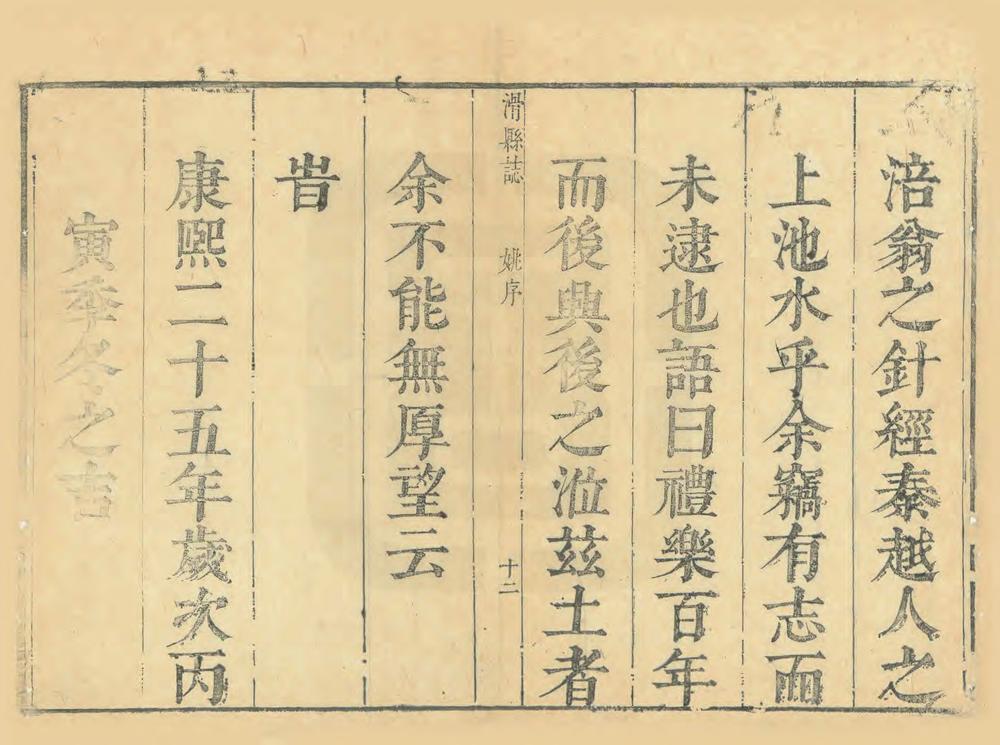 涪翁之針經秦越人之
上池水乎余竊有志而
未逮也語曰禮樂百年
而後興後之涖茲土者
滑縣誌 姚序 十二
余不能無厚望云
旹
康熈二十五年歲次丙
寅季冬之吉